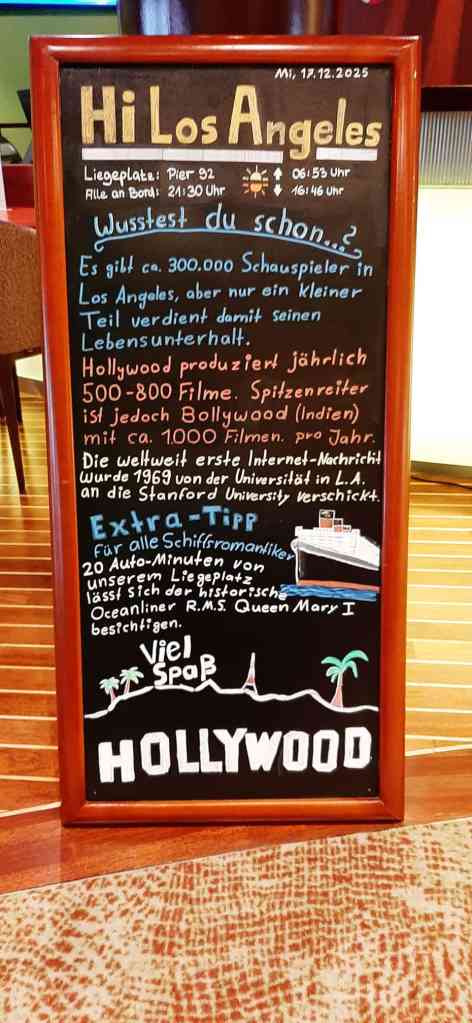 Mi, 17.12.2025
Hi Los Angeles
Liegeplatz: Pier 92 06:53 Uhr
Alle an Bord: 21:30 Uhr 16:46 Uhr
Wusstest du schon...?
Es gibt ca. 300.000 Schauspieler in
Los Angeles, aber nur ein kleiner
Teil verdient damit seinen
Lebensunterhalt.
Hollywood produziert jährlich
500-800 Filme. Spitzenreiter
ist jedoch Bollywood (Indien)
mit ca. 1.000 Filmen. pro Jahr.
Die weltweit erste Internet-Nachricht
wurde 1969 von der Universität in L.A.
an die Stanford University verschickt.
Extra-Tipp
Für alle Schiffsromantiker
20 Auto-Minuten von
unserem Liegeplatz
lässt sich der historische
Oceanliner R.M.S. Queen Mary I
besichtigen.
Viel
Spaß
HOLLYWOOD